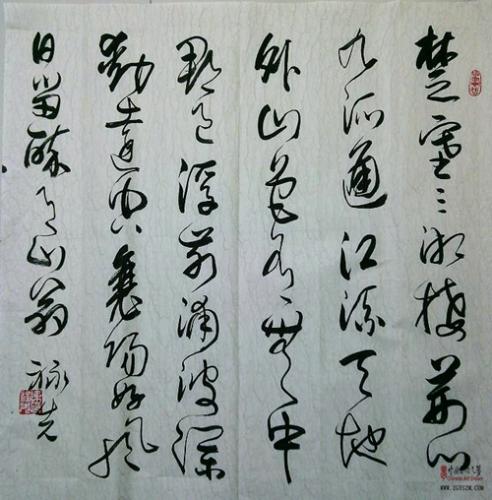 楚塞三湘接荆门
九派通江流天地
外山色有無中
郡邑浮前浦波澜
動遠空襄陽好风
日留醉与山翁